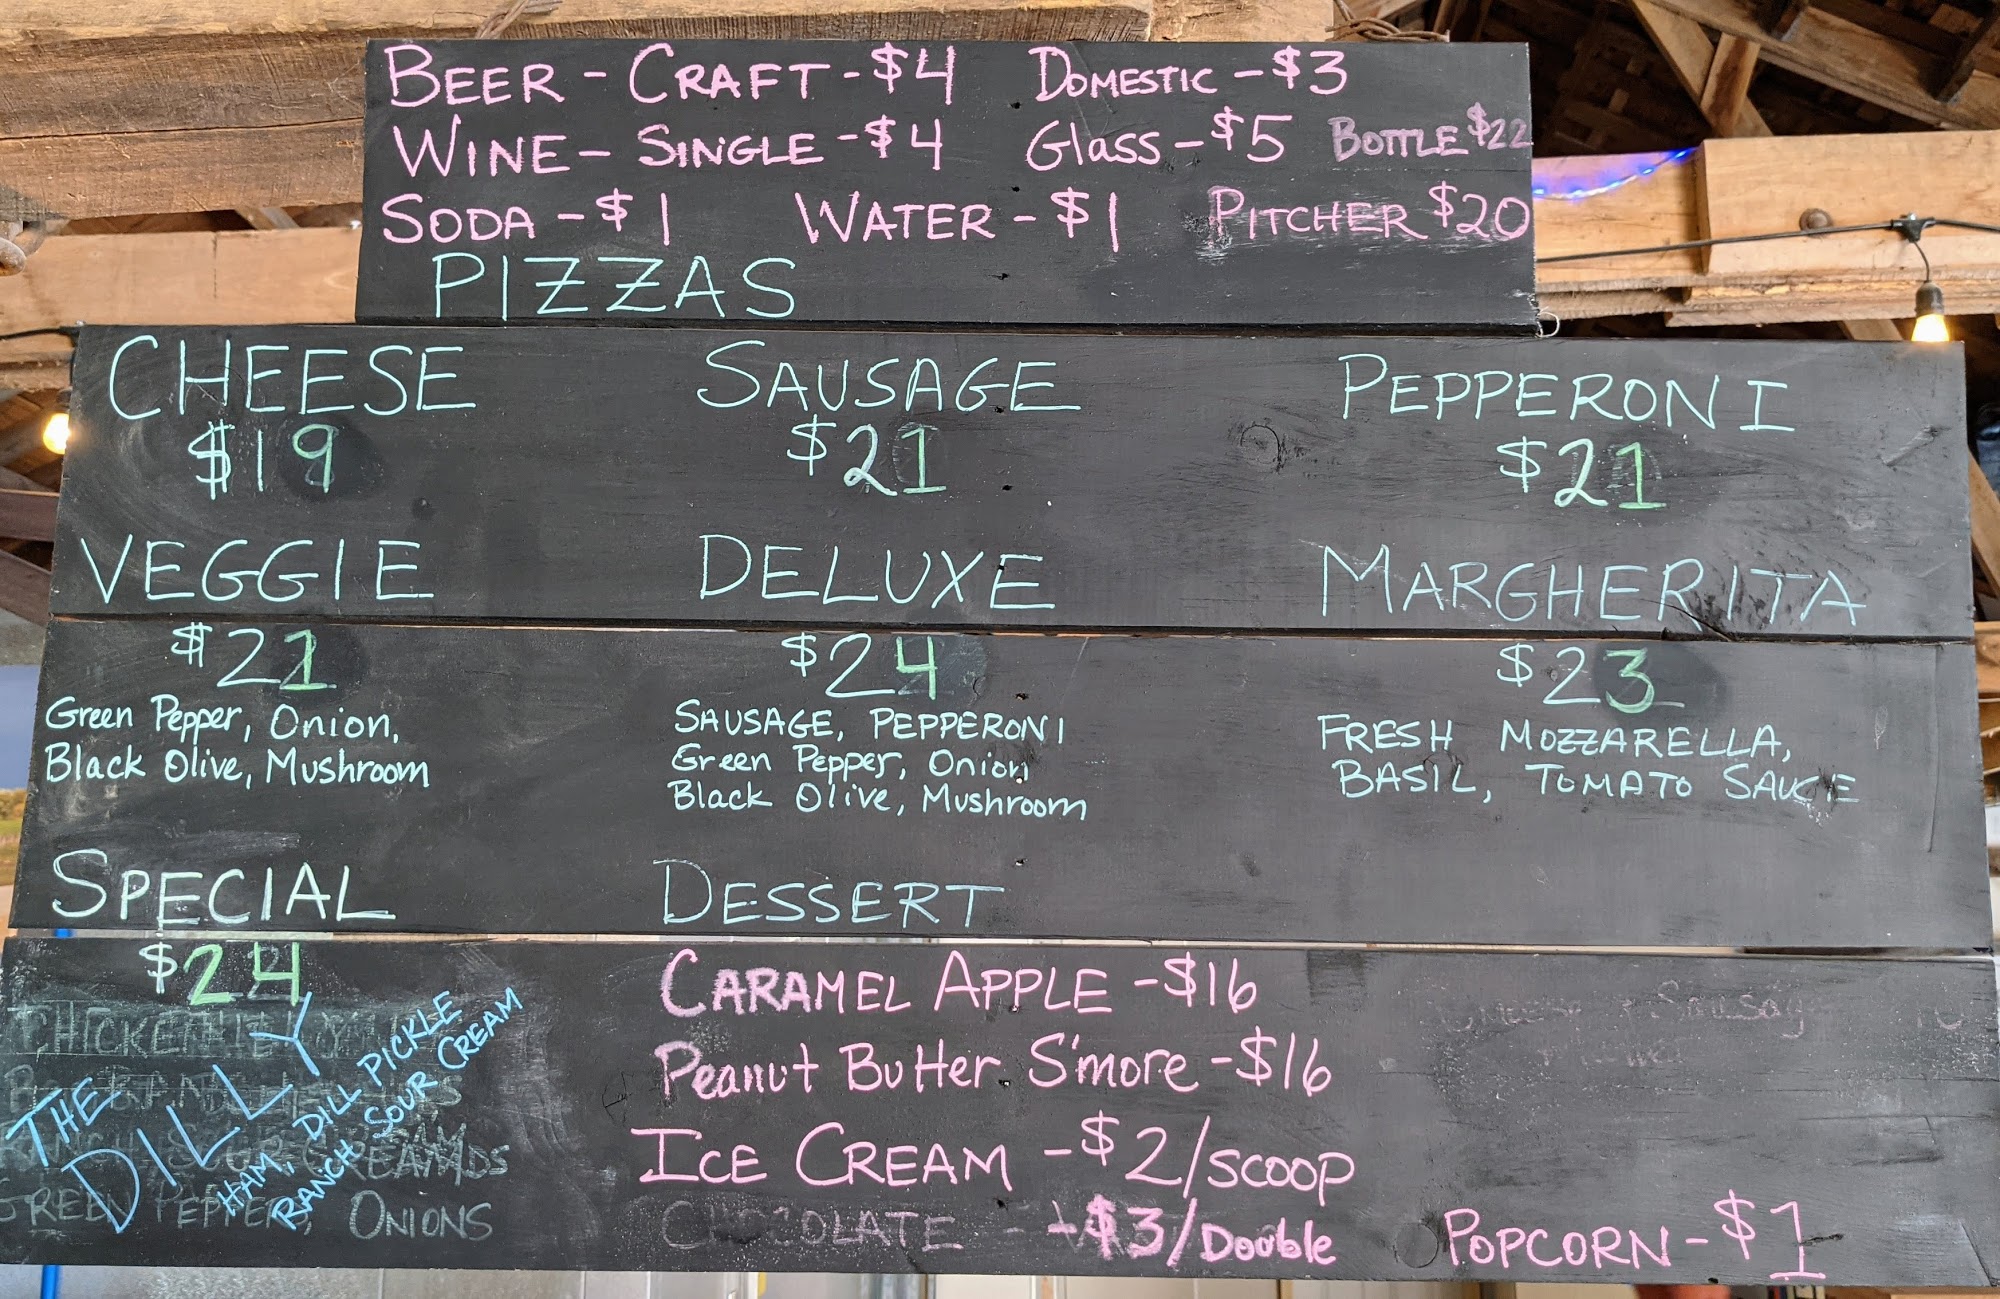 BEER - CRAFT - $4 DOMESTIC - $3
WINE - SINGLE - $4 Glass - $5 BOTTLE $22
SODA - $1 WATER - $1 PITCHER $20
PIZZAS
CHEESE SAUSAGE PEPPERONI
$19 $21 $21
VEGGIE DELUXE MARGHERITA
$21 $24 $23
Green Pepper, Onion,
Black Olive, Mushroom
SAUSAGE, PEPPERONI
Green Pepper, Onion
Black Olive, Mushroom
FRESH MOZZARELLA,
BASIL, TOMATO SAUCE
SPECIAL
$24
THE
DILLY
HAM, DILL PICKLE
RANCH SOUR CREAM
GREEN PEPPERS, ONIONS
DESSERT
CARAMEL APPLE - $16
Peanut Butter S'more - $16
ICE CREAM - $2/SCOOP
CHOCOLATE - $3/Double
POPCORN - $1